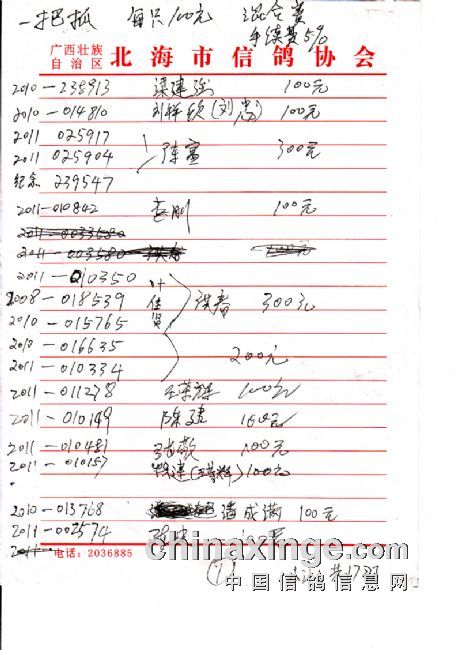 一把抓 每只100元
手续费5%
广西壮族
自治区 北海市信鸽协会
2010-238913 梁建强 100元
2010-014810 100元
2011 025917
2011 025904 陈富 300元
纪念 239547
2011-010842 100元
2011-003580
2011-010350
2008-018539 叶佳贤 300元
2010-015765
2010-016635 200元
2011-010334
2011-011278 王荣辉 100元
2011-010149 陈建 100元
2011-010481 100元
2011-010157 陈建(王荣辉)100元
2010-013768 潘成满 100元
2011-002574
电话:2036885
chinaxinge.com
中国信鸽信息网